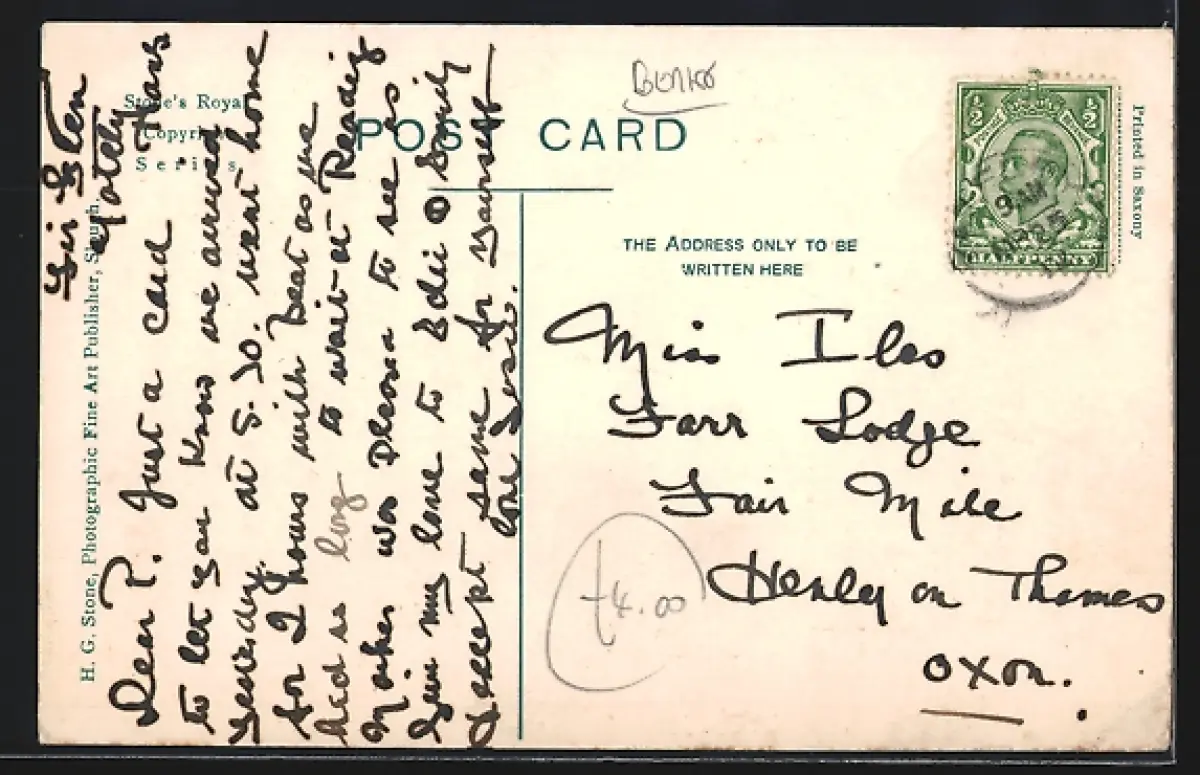 Stone's Royal
Copyright
Series.
H. G. Stone, Photographic Fine Art Publisher, Slough.
POST CARD
THE ADDRESS ONLY TO BE
WRITTEN HERE
Printed in Saxony
½ ½
HALFPENNY
9 AM
Dear P. Just a card
to let you know we arrived
yesterday. at 5.30. went home
for 2 hours with Beat as we
had so long to wait at Reading
Mother was pleased to see us
Give my love to Edie & Emily
& accept same for yourself
love Jessie.
Miss Iles
Farr Lodge
Fair Mile
Henley on Thames
Oxon.
£4.00